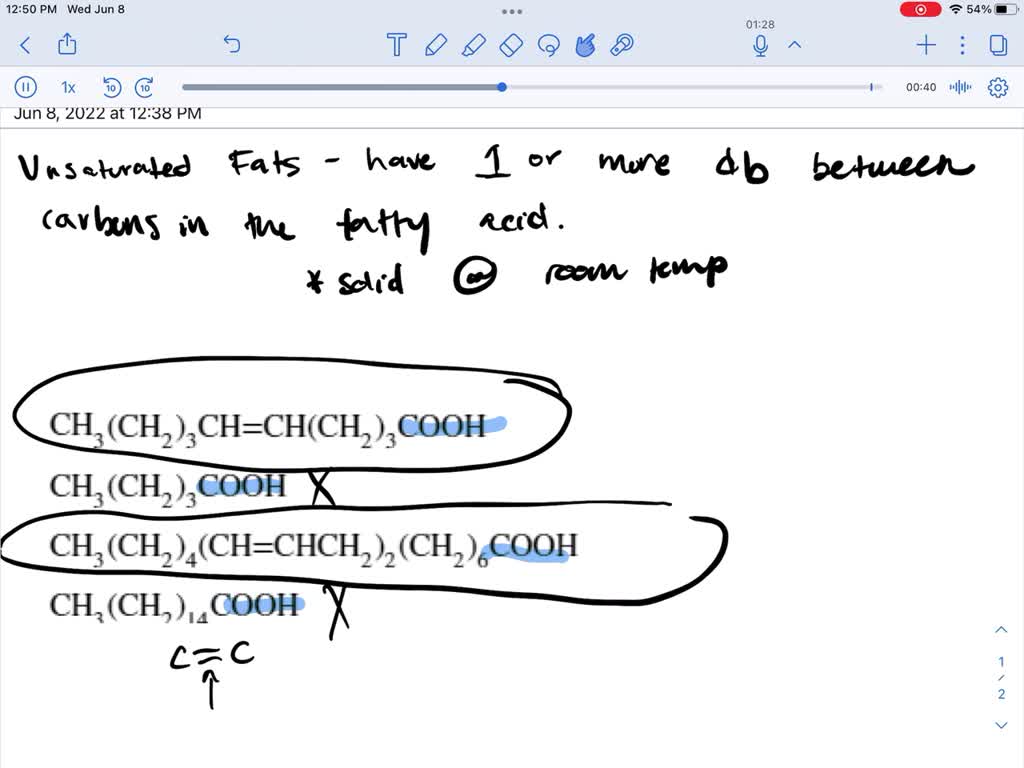 12:50 PM Wed Jun 8
54%
T
01:28
1x
10
10
00:40
Jun 8, 2022 at 12:38 PM
Unsaturated Fats - have 1 or more db between
carbons in the fatty acid.
* solid @ room temp
CH₃(CH₂)₃CH=CH(CH₂)₃COOH
CH₃(CH₂)₃COOH X
CH₃(CH₂)₄(CH=CHCH₂)₂(CH₂)₆COOH
CH₃(CH₂)₁₄COOH X
C=C
1
/
2